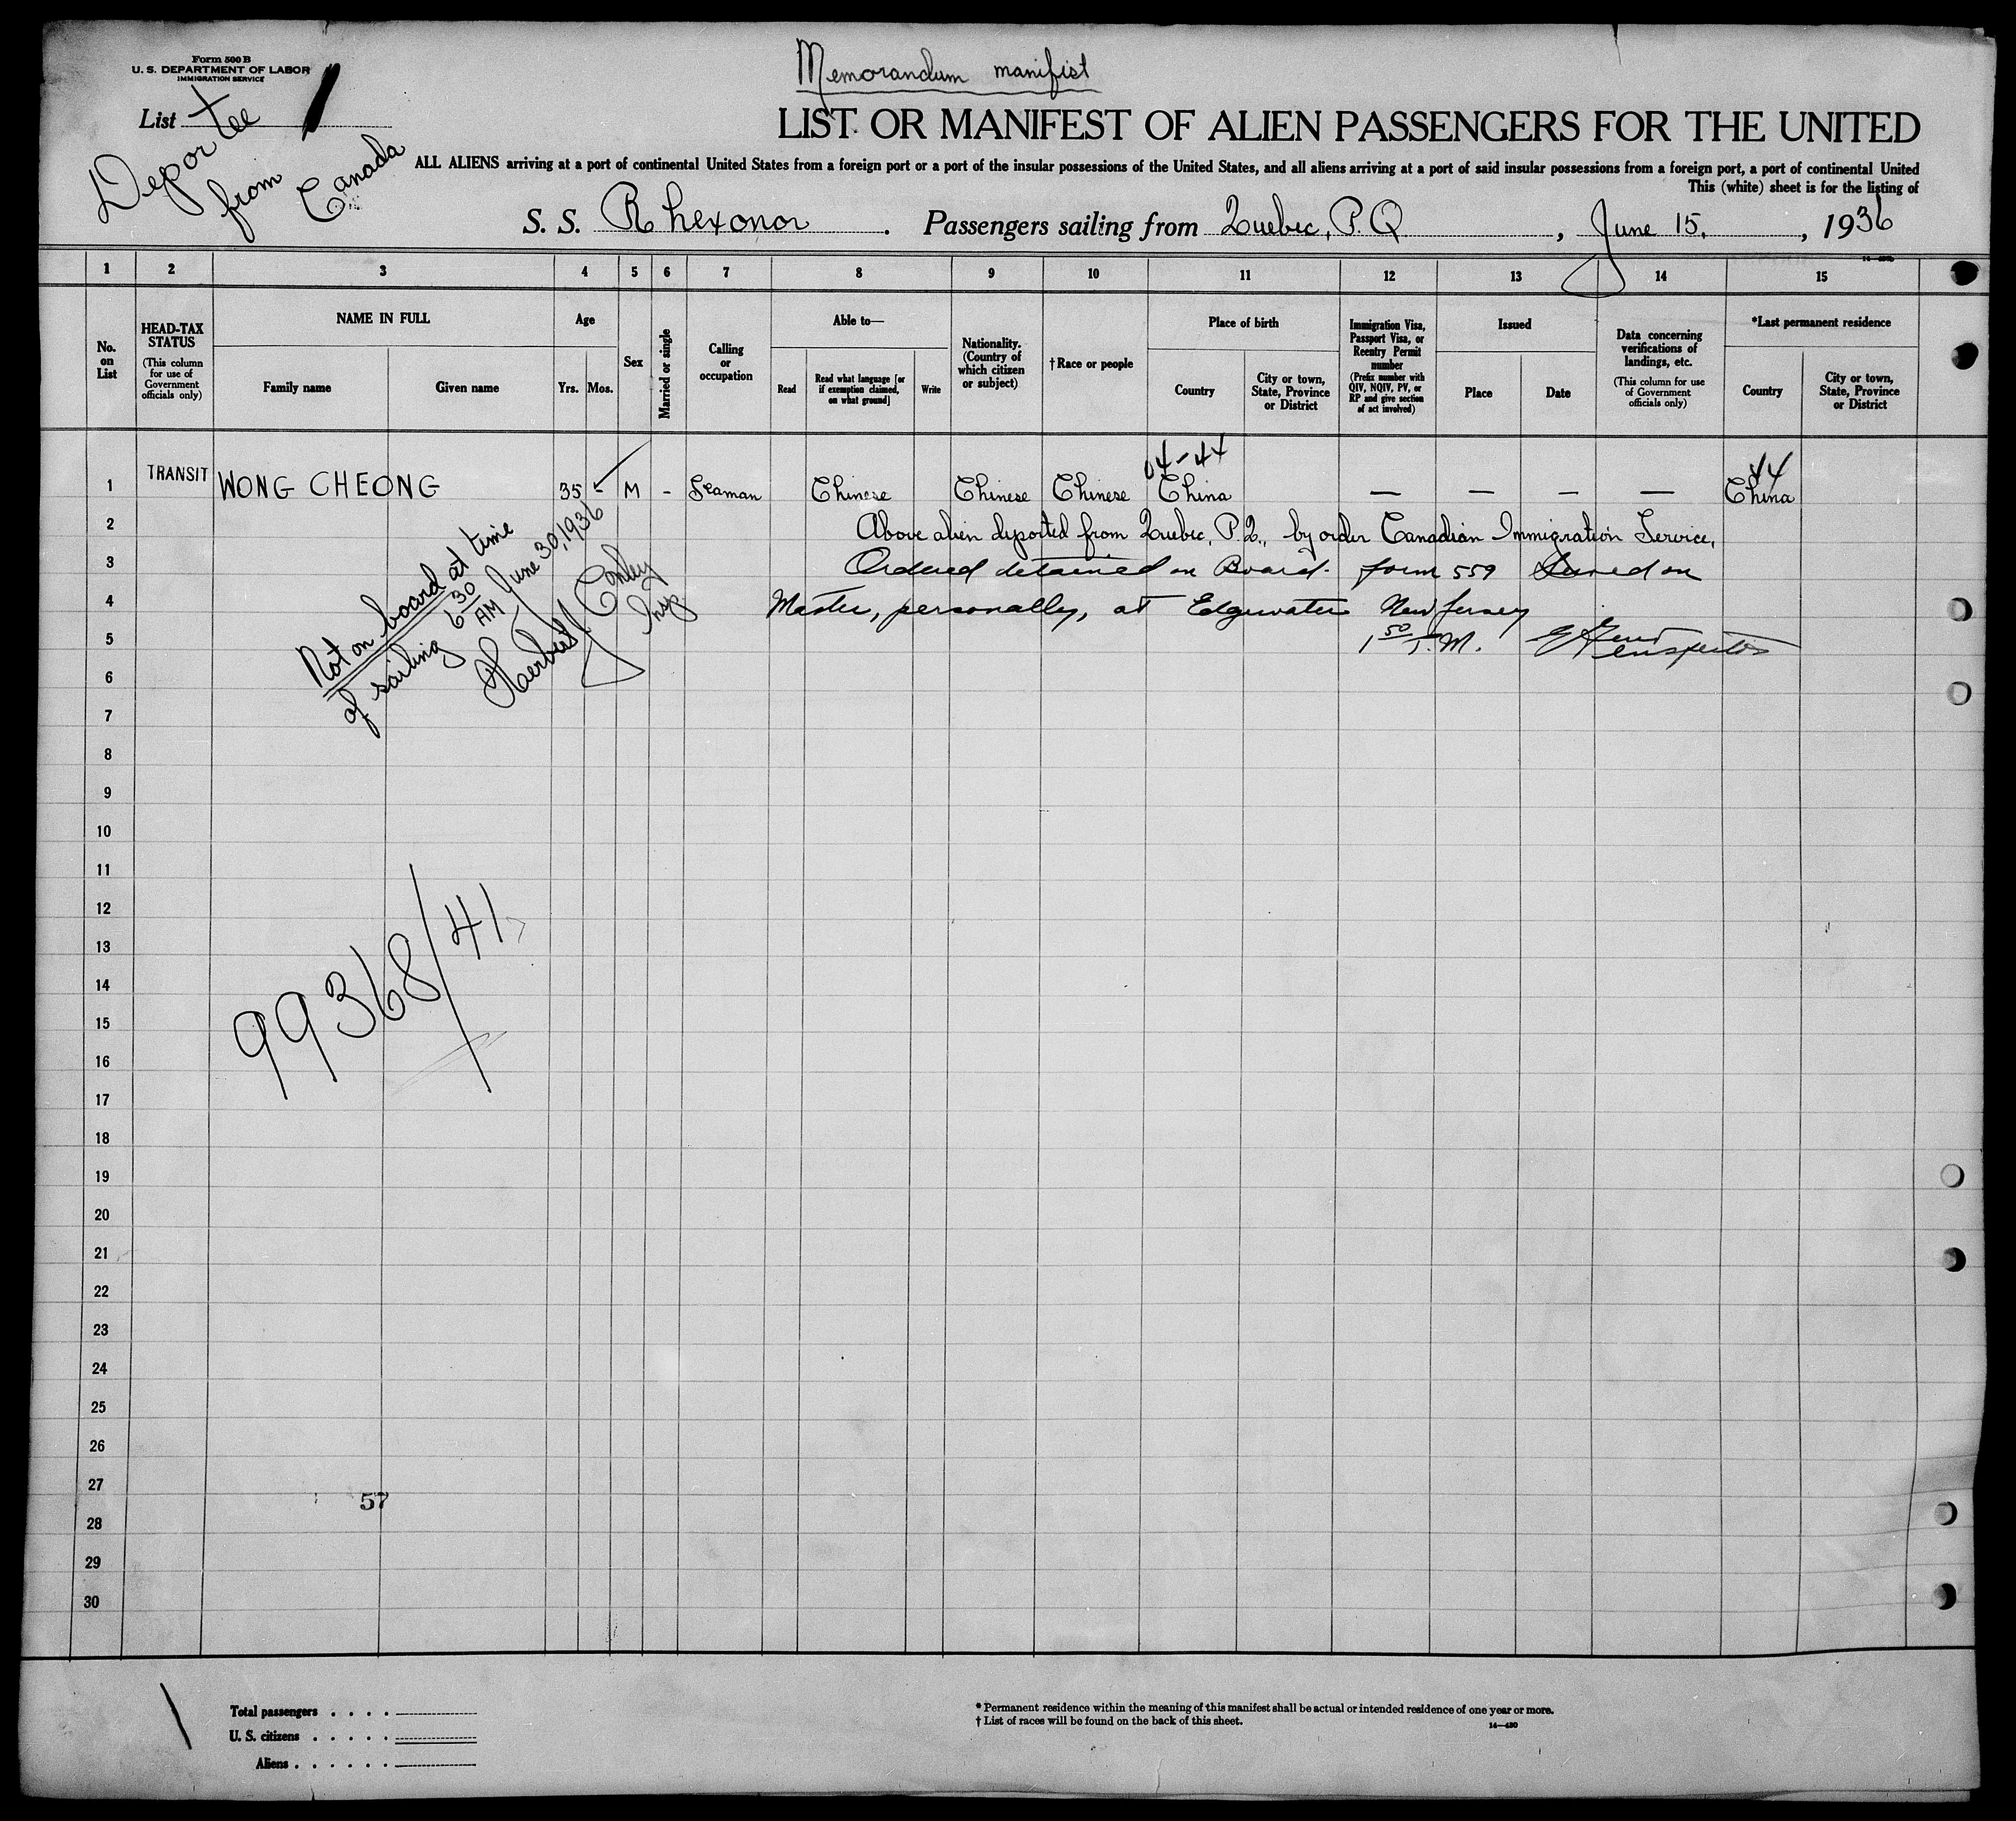 Form 500 B
U. S. DEPARTMENT OF LABOR
IMMIGRATION SERVICE
Memorandum manifist
List 1
Deportee
from
Canada
LIST OR MANIFEST OF ALIEN PASSENGERS FOR THE UNITED
ALL ALIENS arriving at a port of continental United States from a foreign port or a port of the insular possessions of the United States, and all aliens arriving at a port of said insular possessions from a foreign port, a port of continental United
This (white) sheet is for the listing of
S. S. Rhexonor. Passengers sailing from Quebec, P.Q, June 15., 1936
1 2 3 4 5 6 7 8 9 10 11 12 13 14 15
No. on List
HEAD-TAX STATUS
(This column for use of Government officials only)
NAME IN FULL
Family name
Given name
Age
Yrs. Mos.
Sex
Married or single
Calling or occupation
Able to—
Read
Read what language [or if exemption claimed, on what ground]
Write
Nationality. (Country of which citizen or subject)
†Race or people
Place of birth
Country
City or town, State, Province or District
Immigration Visa, Passport Visa, or Reentry Permit number
(Prefix number with QIV, NQIV, PV, or RP and give section of act involved)
Issued
Place
Date
Data concerning verifications of landings, etc.
(This column for use of Government officials only)
*Last permanent residence
Country
City or town, State, Province or District
04-44
44
1 TRANSIT WONG CHEONG 35 - M - Seaman Chinese Chinese Chinese China — — — — China
2 Above alien deported from Quebec, P.Q., by order Canadian Immigration Service,
3 Ordered detained on Board. form 559 Served on
4 Master, personally, at Edgewater New Jersey
5 1 50 P.M. Inspector
Not on board at time
of sailing 6 30 AM June 30, 1936
Herbert J. Conley
Insp
6
7
8
9
10
11
12
13
14
15
16
17
18
19
20
21
22
23
24
25
26
27
28
29
30
99368/41
57
Total passengers
U. S. citizens
Aliens
* Permanent residence within the meaning of this manifest shall be actual or intended residence of one year or more.
† List of races will be found on the back of this sheet.
14—430